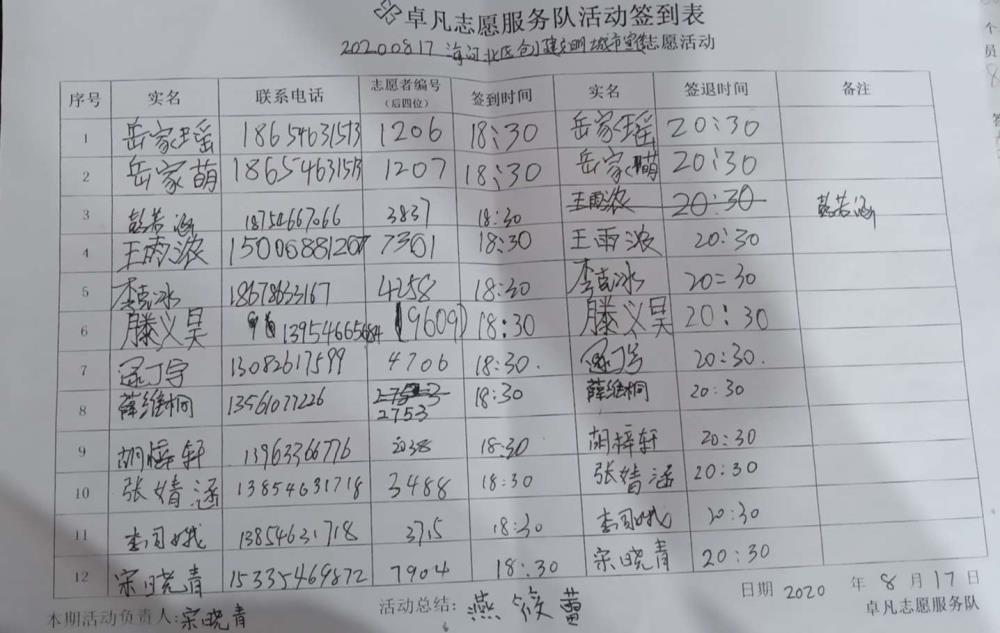 卓凡志愿服务队活动签到表
20200817 海河北区创建文明城市宣传志愿活动
序号 实名 联系电话 志愿者编号(后四位) 签到时间 实名 签退时间 备注
1 岳家瑶 18654631513 1206 18:30 岳家瑶 20:30
2 岳家萌 18654631513 1207 18:30 岳家萌 20:30
3 彭若涵 18754667066 3837 18:30 王雨浓 20:30 彭若涵
4 王雨浓 15006881207 7301 18:30 王雨浓 20:30
5 李克冰 18678633167 4258 18:30 李克冰 20:30
6 滕义昊 13954665684 (9609) 18:30 滕义昊 20:30
7 13082617599 4706 18:30. 20:30.
8 薛维桐 13561077226 2753 2753 18:30 薛维桐 20:30
9 胡梓轩 13963366776 2038 18:30 胡梓轩 20:30
10 张婧涵 13854631718 3488 18:30 张婧涵 20:30
11 李司娥 13854631718 3715 18:30 李司娥 20:30
12 宋晓青 15335469872 7904 18:30 宋晓青 20:30
日期 2020 年 8 月 17 日
本期活动负责人:宋晓青 活动总结: 燕筱蕾 卓凡志愿服务队